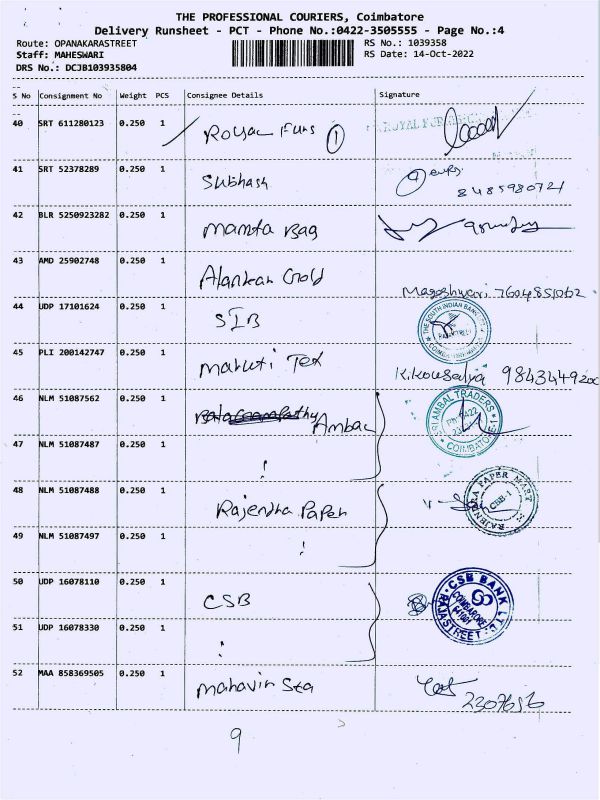 THE PROFESSIONAL COURIERS, Coimbatore
Delivery Runsheet - PCT - Phone No.:0422-3505555 - Page No.:4
Route: OPANAKARASTREET RS No.: 1039358
Staff: MAHESWARI RS Date: 14-Oct-2022
DRS No.: DCJB103935804
S No Consignment No Weight PCS Consignee Details Signature
40 SRT 611280123 0.250 1 Royal Furs 1
41 SRT 52378289 0.250 1 Subhash
8485980721
42 BLR 5250923282 0.250 1 Mamta Bag
43 AMD 25902748 0.250 1 Alankar Gold
Mageshwari 7604851062
44 UDP 17101624 0.250 1 SIB THE SOUTH INDIAN BANK
COIMBATORE
45 PLI 200142747 0.250 1 Maruti Tex
K.Kousalya
46 NLM 51087562 0.250 1 Ambal AMBAL TRADERS
COIMBATORE
47 NLM 51087487 0.250 1
48 NLM 51087488 0.250 1 Rajendra Paper RAJENDRA PAPER MART
CBE-1
49 NLM 51087497 0.250 1
50 UDP 16078110 0.250 1 CSB CSB BANK LTD
COIMBATORE
641001
RAJASTREET
51 UDP 16078330 0.250 1
52 MAA 858369505 0.250 1 Mahavir Sta
2307656
9